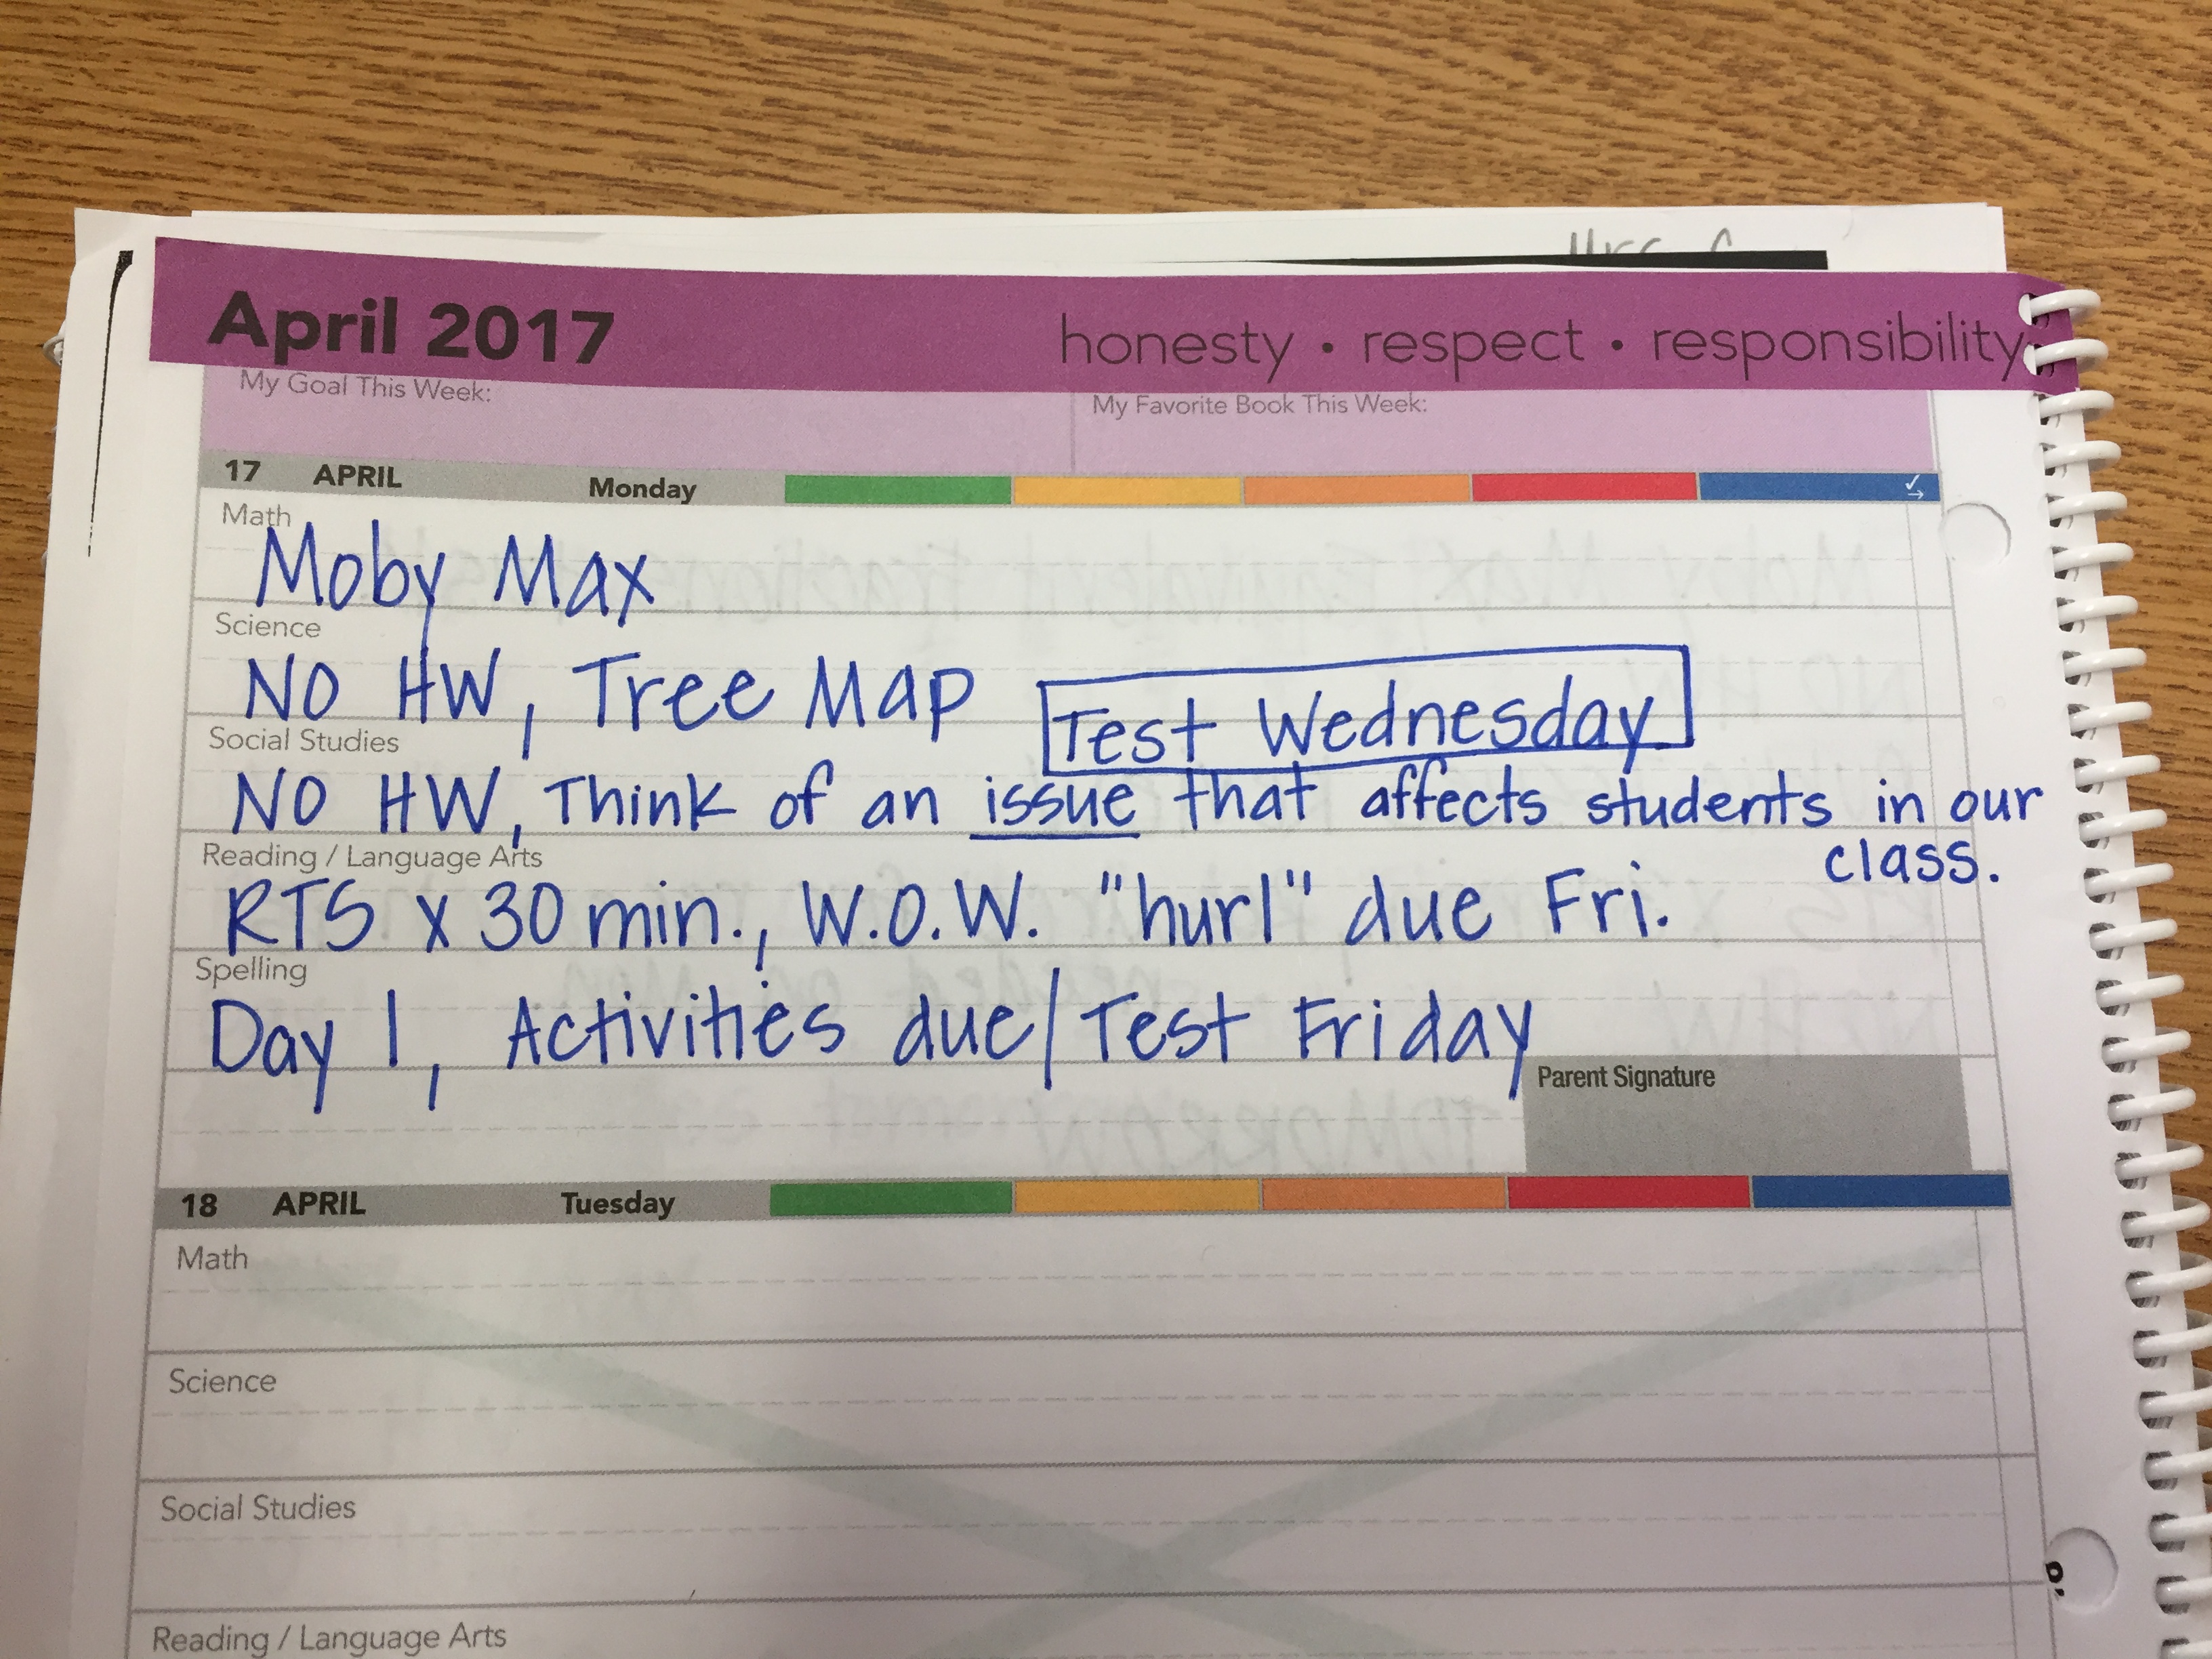 April 2017 honesty • respect • responsibility
My Goal This Week: My Favorite Book This Week:
17 APRIL Monday
Math
Moby Max
Science
NO HW, Tree Map
Test Wednesday
Social Studies
NO HW, Think of an issue that affects students in our
class.
Reading / Language Arts
RTS x 30 min., W.O.W. "hurl" due Fri.
Spelling
Day 1, Activities due/Test Friday
Parent Signature
18 APRIL Tuesday
Math
Science
Social Studies
Reading / Language Arts